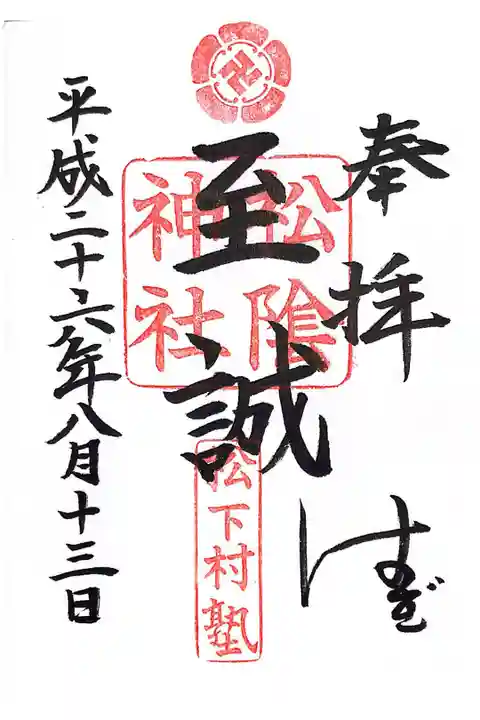 奉拝
はぎ
至誠
松陰
神社
松下村塾
平成二十六年八月十三日